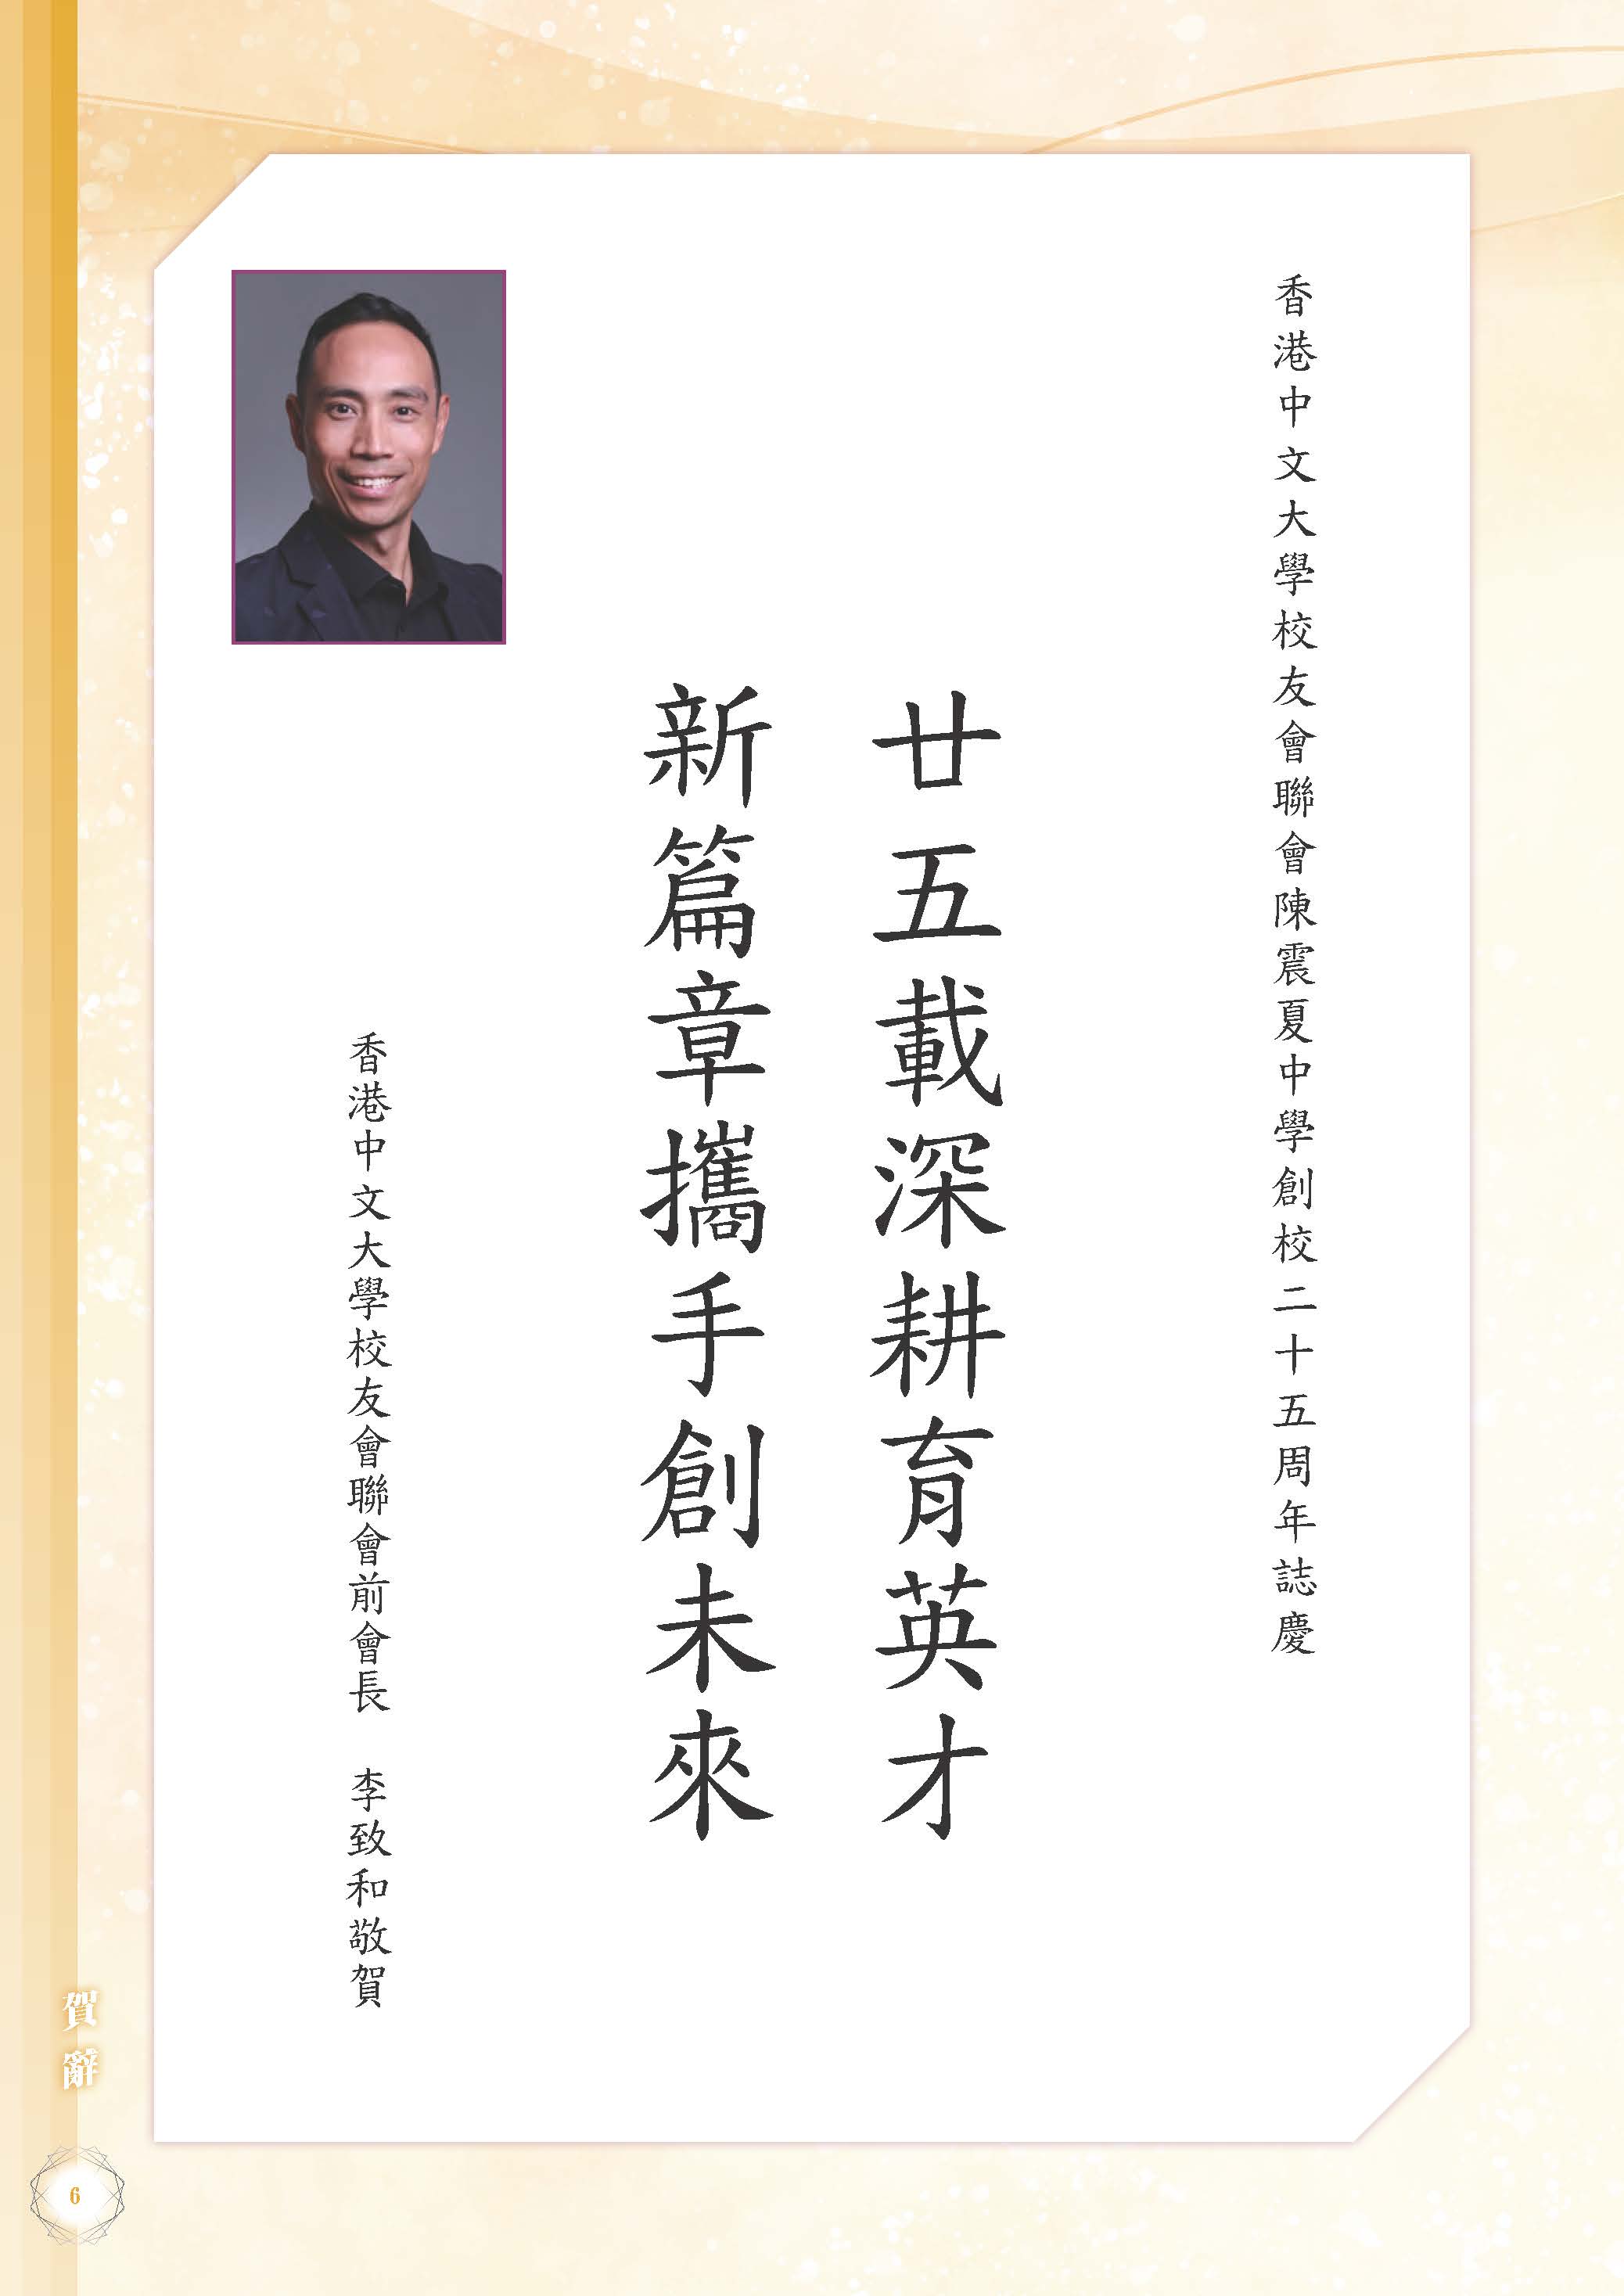 香港中文大學校友會聯會陳震夏中學創校二十五周年誌慶
廿五載深耕育英才
新篇章攜手創未來
香港中文大學校友會聯會前會長　李致和敬賀
賀辭
6